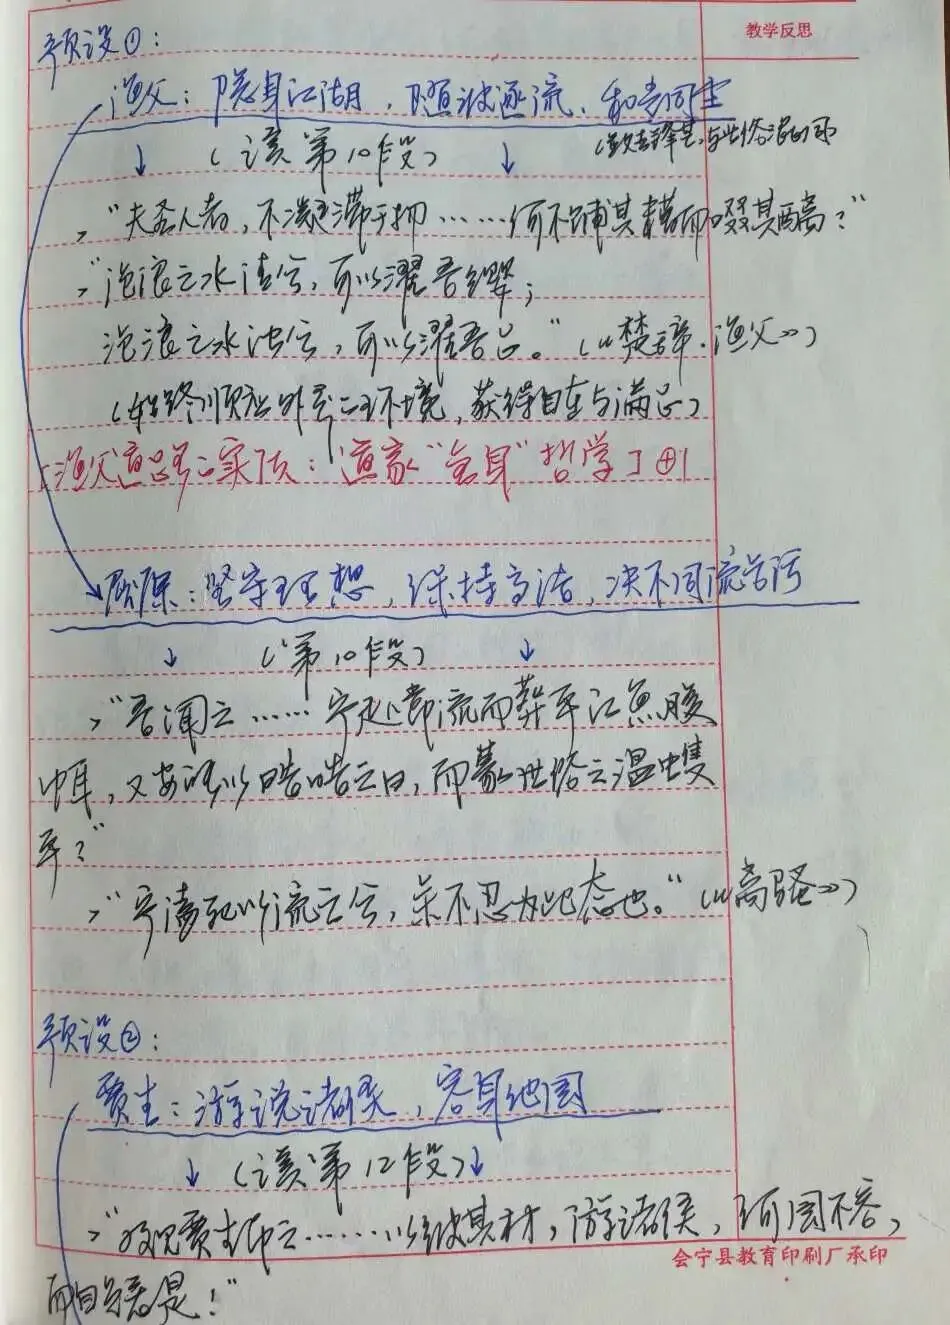 教学反思
预设①:
渔父:隐身江湖,随波逐流、和光同尘
(读第10段)
"夫圣人者,不凝滞于物……何不餔其糟而啜其醨?"
"沧浪之水清兮,可以濯吾缨;
沧浪之水浊兮,可以濯吾足。"(《楚辞·渔父》)
(始终顺应外界之环境,获得自在与满足)
[渔父意思之实质:道家"全身"哲学]
屈原:坚守理想,保持高洁,决不同流合污
(第10段)
"吾闻之……宁赴常流而葬乎江鱼腹
中耳,又安能以皓皓之白,而蒙世俗之温蠖
乎?"
"宁溘死以流亡兮,余不忍为此态也。"(《离骚》)
预设②:
贾生:游说诸侯,容身他国
(读第12段)
"及见贾生吊之……以彼其材,游诸侯,何国不容,
而自令若是!"
会宁县教育印刷厂承印